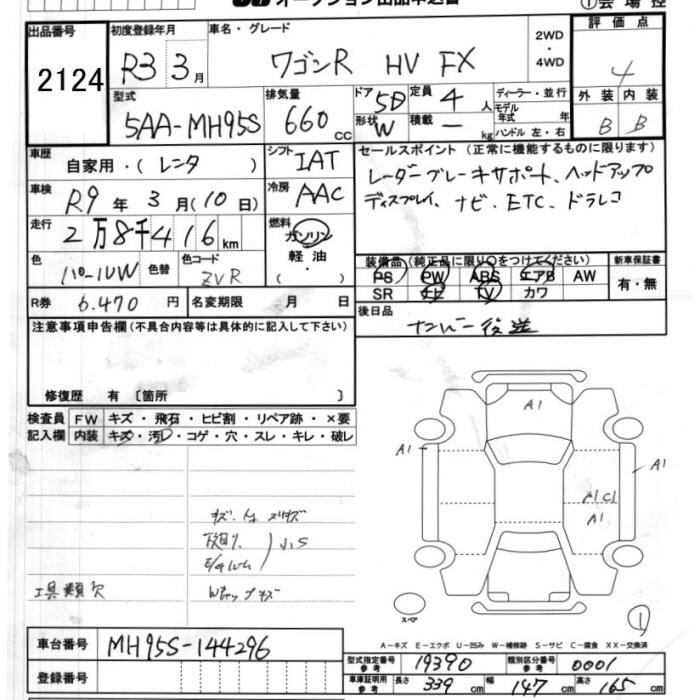 オークション出品申込書
①会場控
出品番号 2124
初度登録年月 R3 3月
車名・グレード ワゴンR HV FX
2WD・4WD
評価点 4
型式 5AA-MH95S
排気量 660 cc
ドア 5D 形状 W
定員 4 人 積載 ー kg
ディーラー・並行
モデル年式 年式
ハンドル 左・右
外装 B 内装 B
車歴 自家用・(レンタ)
シフト IAT
車検 R9年 3月(10日)
冷房 AAC
走行 2万8千416km
燃料 ガソリン 軽油・( )
色 パールW 色替 色コード ZVR
R券 6.470円 名変期限 月 日
セールスポイント(正常に機能するものに限ります)
レーダーブレーキサポート、ヘッドアップ
ディスプレイ、ナビ、ETC、ドラレコ
装備品(純正品に限り○をつけてください)
PS PW ABS エアB AW
SR ナビ TV カワ
新車保証書 有・無
後日品 ナンバー後送
注意事項申告欄(不具合内容等は具体的に記入して下さい)
修復歴 有〔箇所 〕
検査員記入欄
FW キズ・飛石・ヒビ割・リペア跡・×要
内装 キズ・汚レ・コゲ・穴・スレ・キレ・破レ
工具類欠
A1
A1
A1
A1C1
A1
スペア
①
A−キズ E−エクボ U−凹み W−補修跡 S−サビ C−腐食 XX−交換済
車台番号 MH95S-144296
登録番号
型式指定番号 参考 19390
類別区分番号 参考 0001
車庫証明用 参考 長さ 339 cm 幅 147 cm 高さ 165 cm